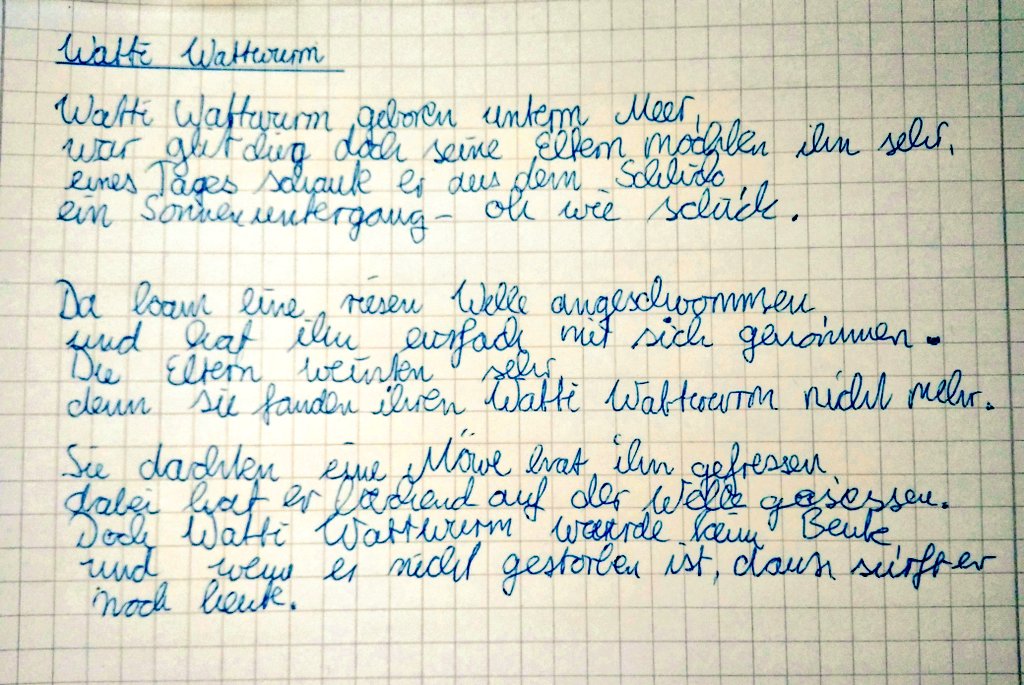 Watti Wattwurm
Watti Wattwurm geboren unterm Meer,
war glitschig doch seine Eltern mochten ihn sehr,
eines Tages schaute er aus dem Schlick
ein Sonnenuntergang – oh wie schick.
Da kam eine riesen Welle angeschwommen
und hat ihn einfach mit sich genommen.
Die Eltern weinten sehr,
denn sie fanden ihren Watti Wattwurm nicht mehr.
Sie dachten eine Möwe hat ihn gefressen
dabei hat er lachend auf der Welle gesessen.
Doch Watti Wattwurm wurde kein Beute
und wenn er nicht gestorben ist, dann surft er
noch heute.